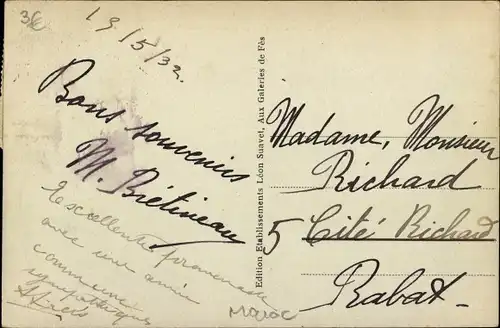 3€
19/5/32
Bons souvenirs
M. Brétineau
Excellente promenade
avec une amie
commune
sympathique
Edition Etablissements Léon Suavet, Aux Galeries de Fès
Madame, Monsieur
Richard
5 Cité Richard
Rabat
Maroc